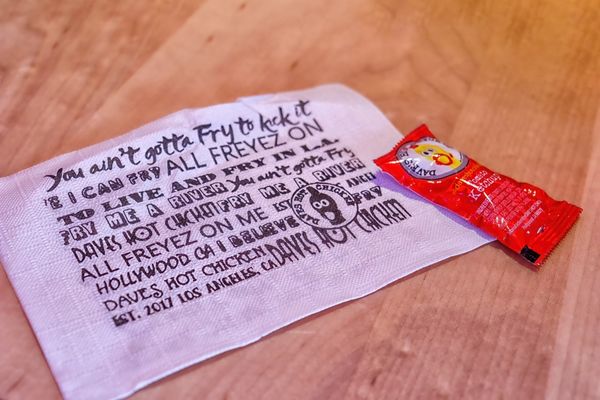 You ain't gotta Fry to kck it
E I CAN FRY ALL FREYEZ ON
TO LIVE AND FRY IN L.A.
FRY ME A RIVER You ain't gotta Fry
DAVES HOT CHICKEN FRY ME A RIVER
ALL FREYEZ ON ME EST.
HOLLYWOOD CA I BELIEVE
DAVES HOT CHICKEN DAVES HOT CHICKEN
EST. 2017 LOS ANGELES, CA
HOT CHICK
DAVE'S
Ketchup